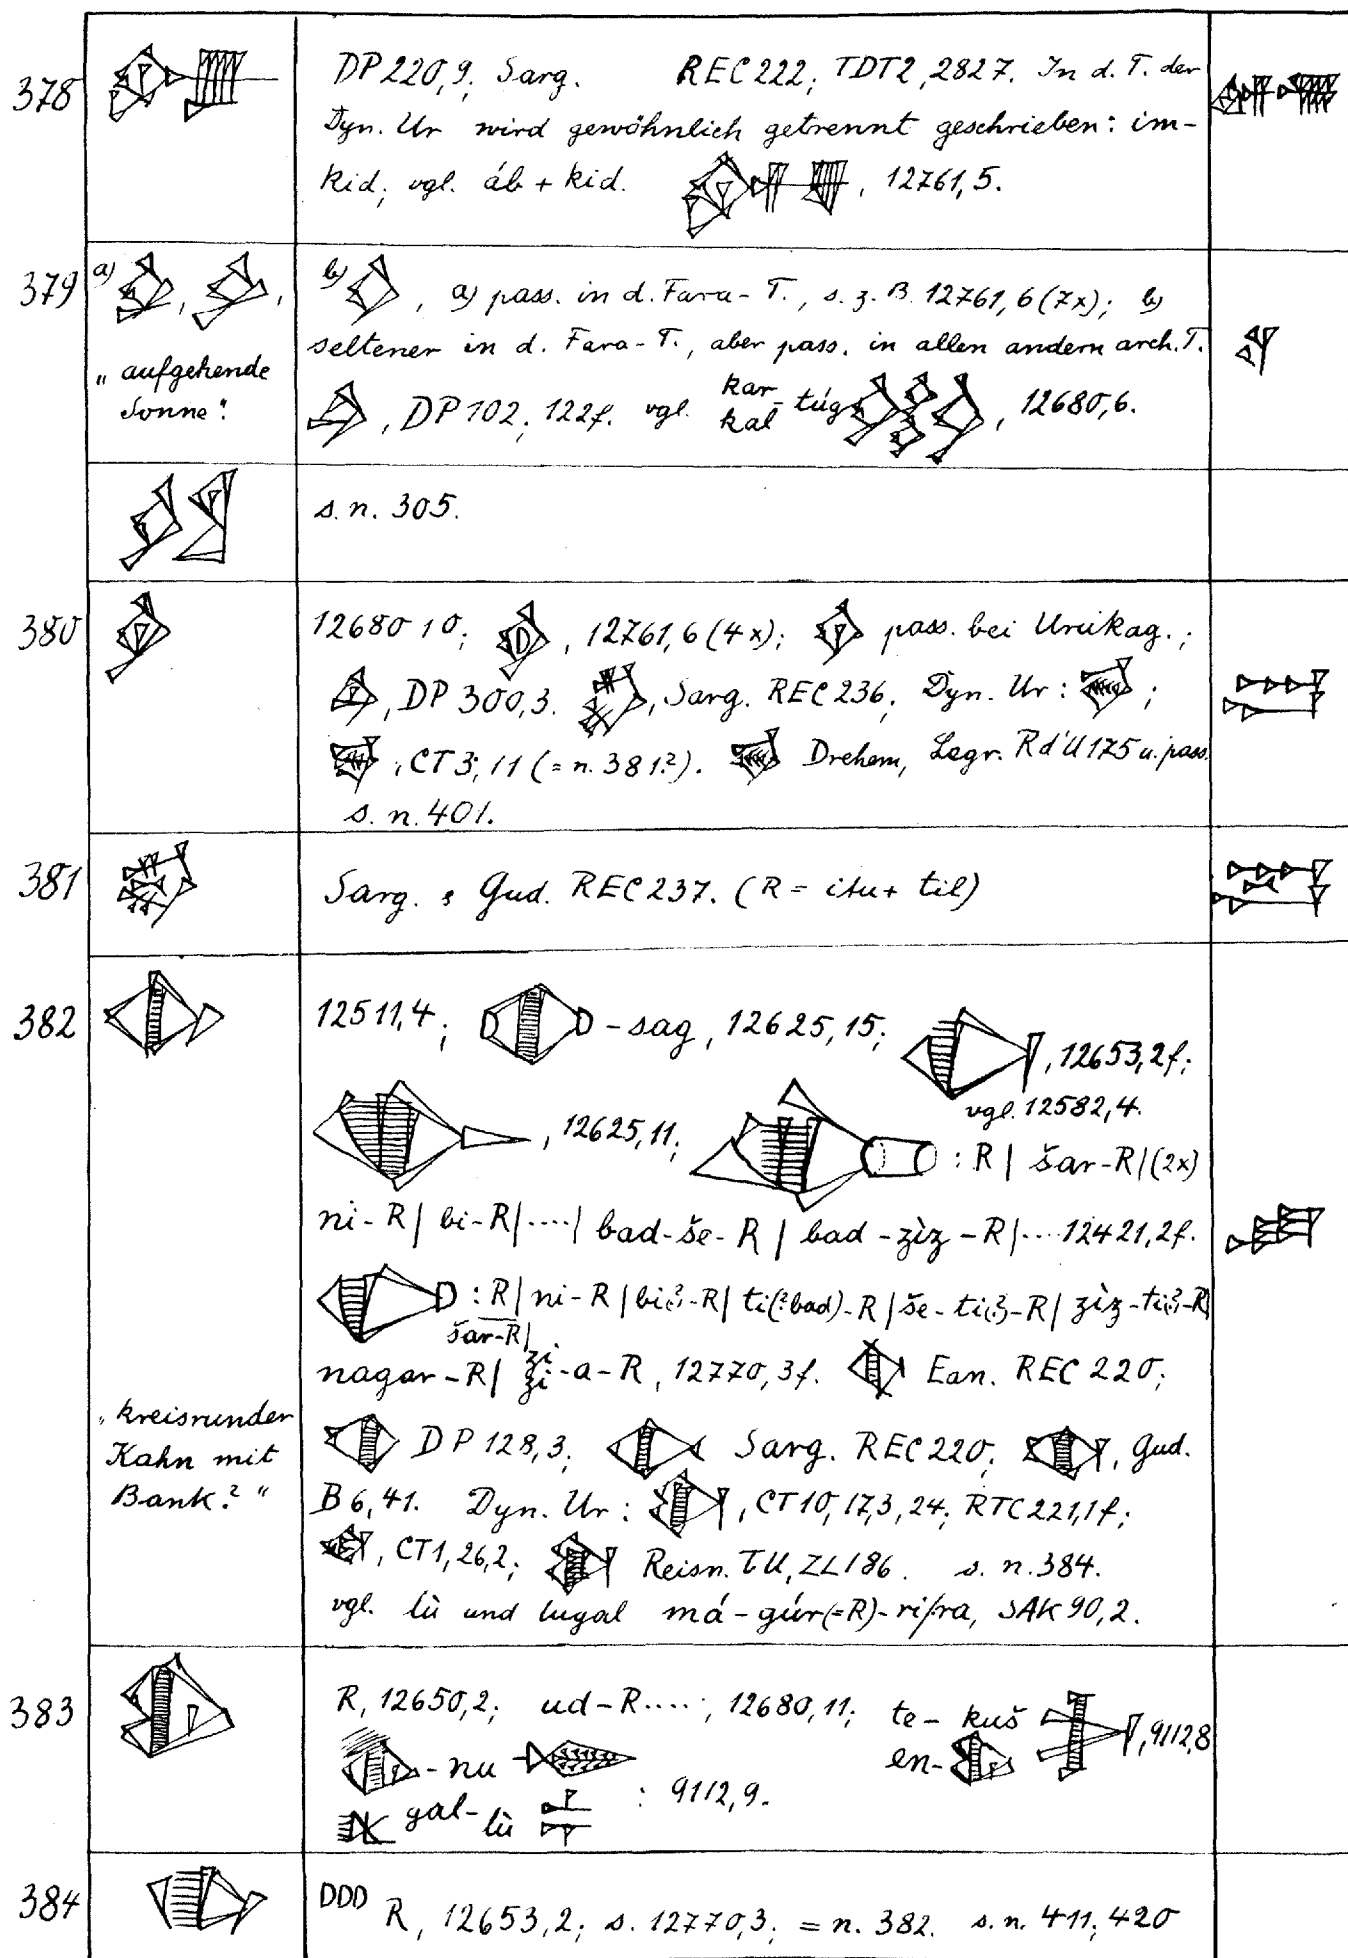 378 DP 220,9; Sarg. REC 222; TDT2, 2827. In d. T. der
Dyn. Ur wird gewöhnlich getrennt geschrieben: im-
kid; vgl. áb + kid. , 12761,5.
379 a) , , b) , a) pass. in d. Fara-T., s. z. B. 12761,6 (7x); b)
seltener in d. Fara-T., aber pass. in allen andern arch. T.
„aufgehende
Sonne“
, DP 102; 122f. vgl. kar-kal túg , 12680,6.
s. n. 305.
380 12680 10; , 12761,6 (4x); pass. bei Urukag.;
, DP 300,3. , Sarg. REC 236; Dyn. Ur: ;
, CT 3; 11 (= n. 381?). Drehem, Legr. Rd'U 175 u. pass.
s. n. 401.
381 Sarg. Gud. REC 237. (R = itu + til)
382 12511,4; -sag, 12625,15; , 12653,2f;
vgl. 12582,4.
, 12625,11; : R | šar-R | (2x)
ni-R | bi-R | .... | bad-še-R | bad-zìz-R | ... 12421,2f.
: R | ni-R | bi(?)-R | ti(?bad)-R | še-ti(?)-R | zìz-ti(?)-R
šar-R |
nagar-R | zi zi-a-R, 12770,3f. Ean. REC 220;
„kreisrunder
Kahn mit
Bank?“
DP 128,3; Sarg. REC 220; , Gud.
B 6,41. Dyn. Ur: , CT 10, 17,3,24; RTC 221,1f;
, CT 1, 26,2; Reisn. TU, ZL 186. s. n. 384.
vgl. lù und lugal má-gúr(=R)-ri/ra, SAK 90,2.
383 R, 12650,2; ud-R....; 12680,11; te-kuš , 9112,8
-nu en-
gal-lù : 9112,9.
384 DDD R, 12653,2; s. 12770,3; = n. 382. s. n. 411; 420